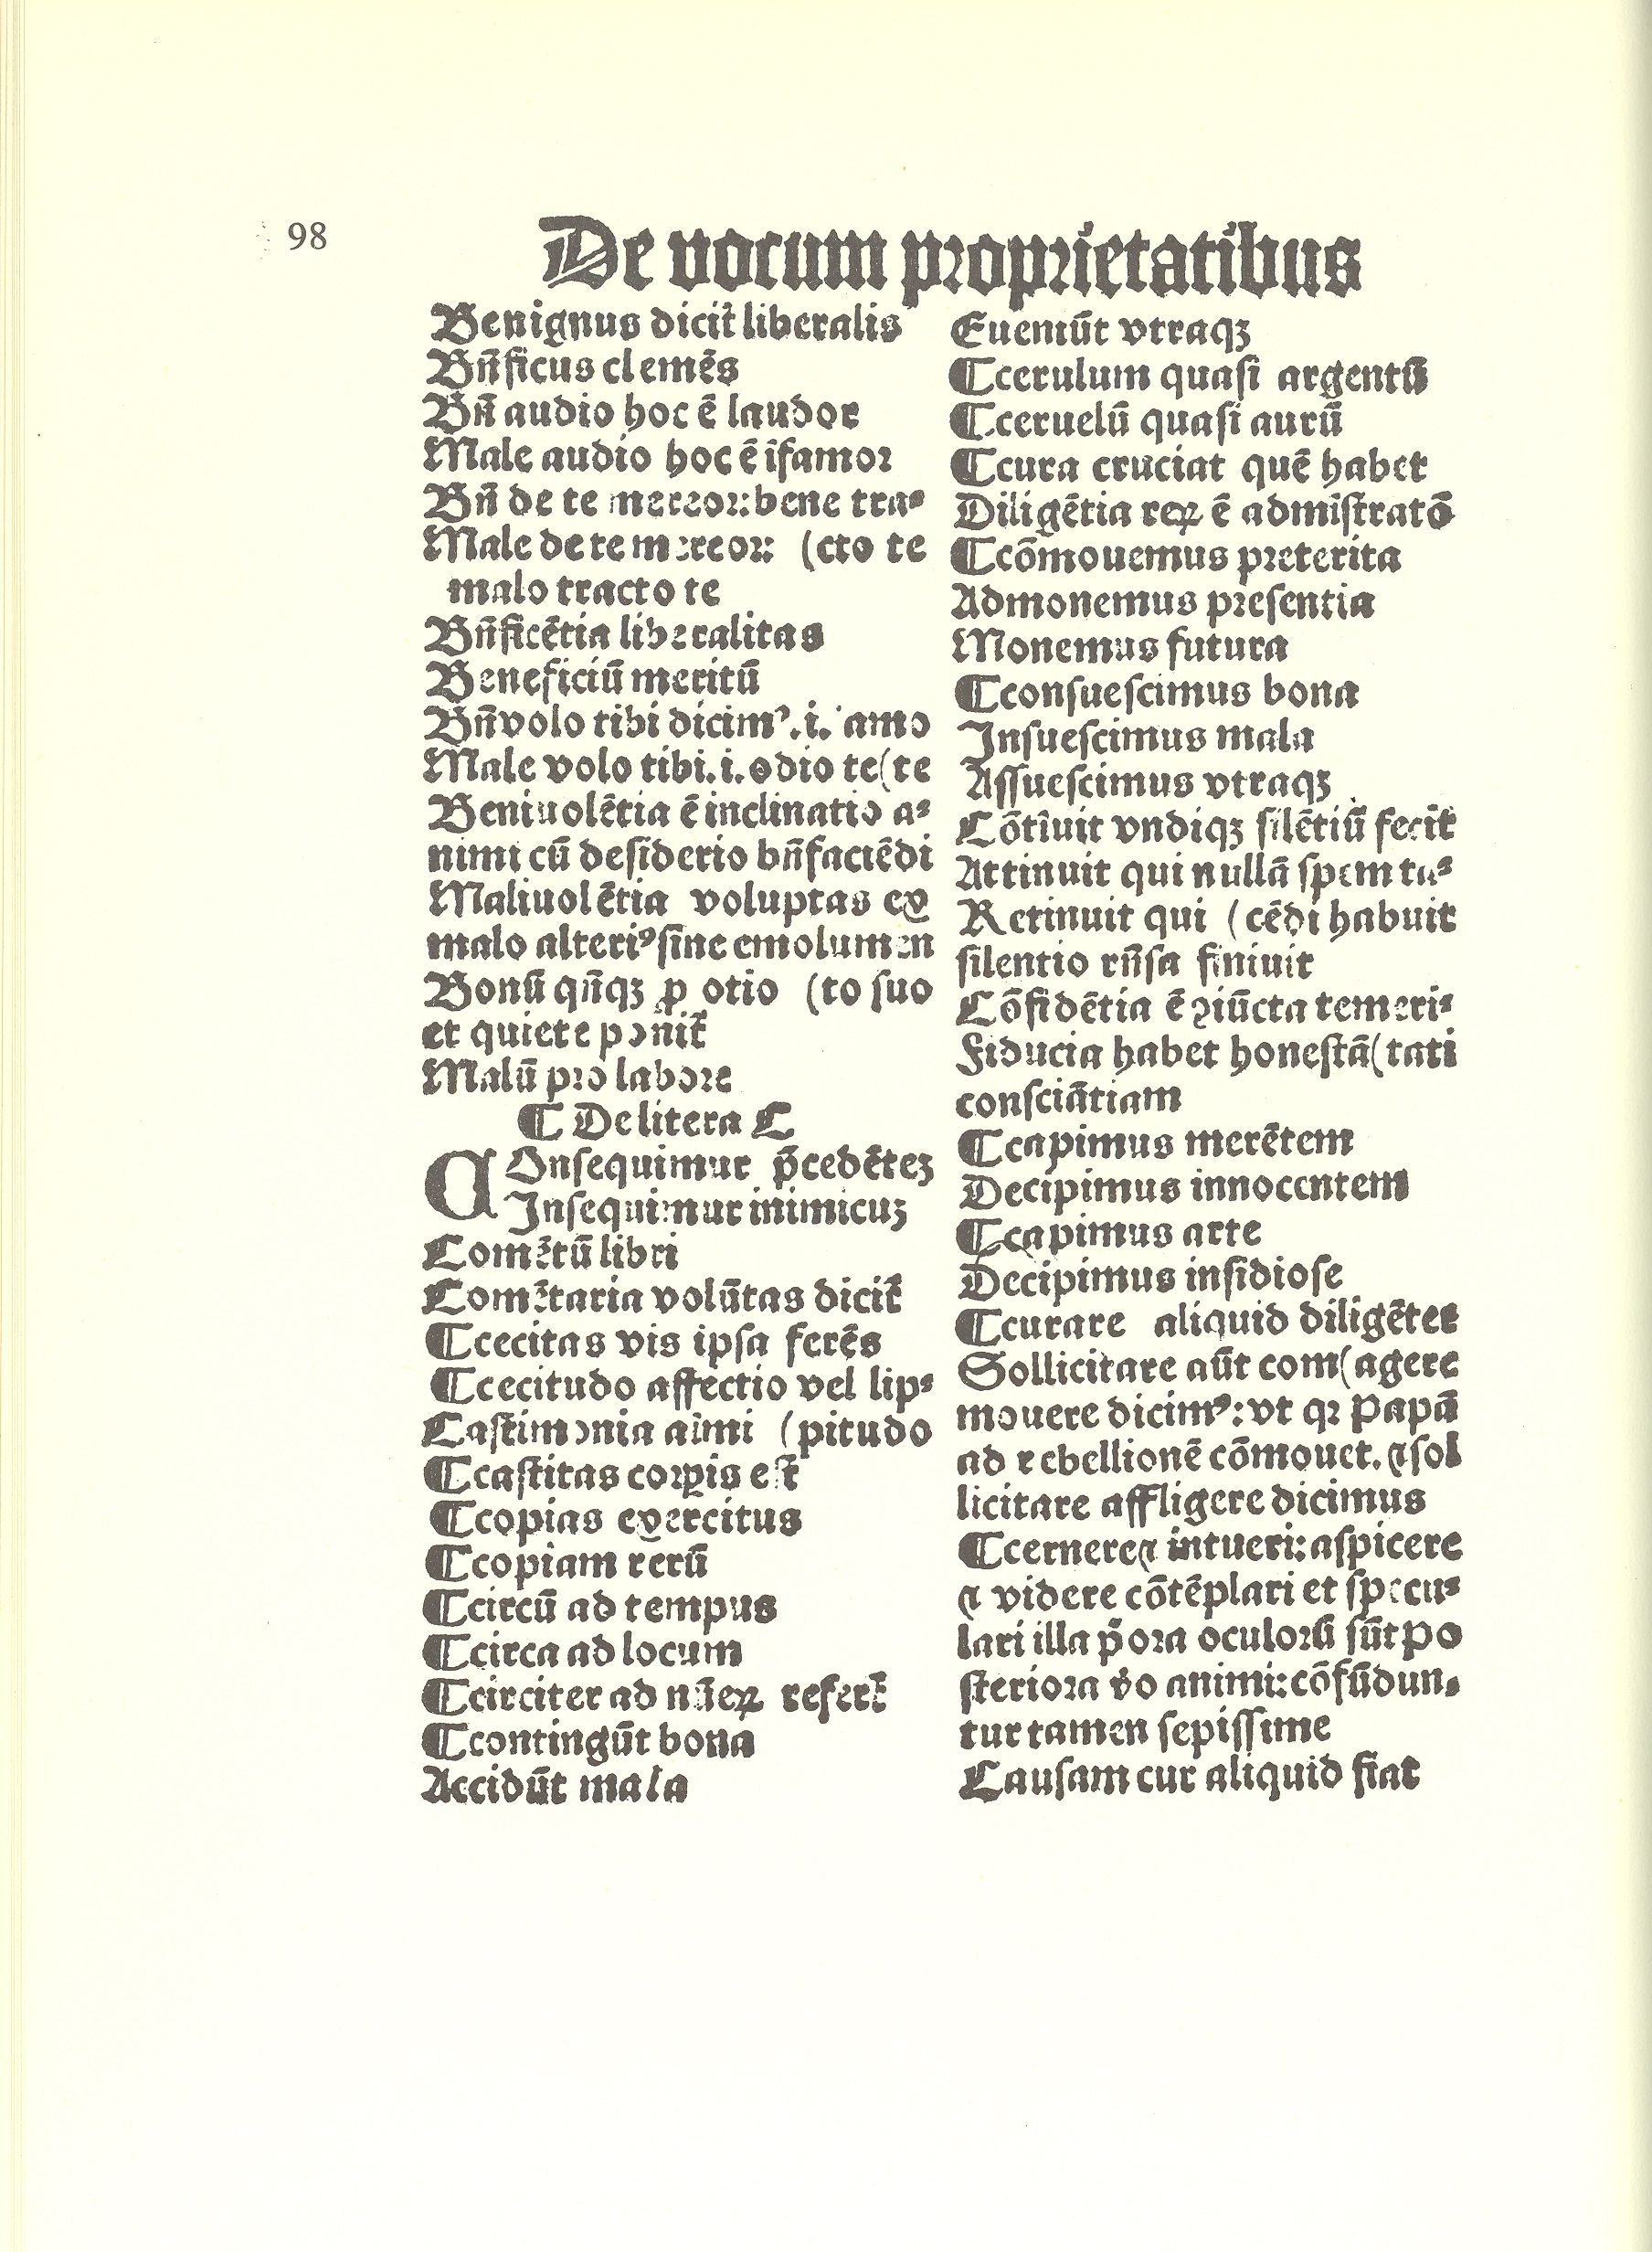 98
De vocum proprietatibus
Benignus dicit̃ liberalis
Bñficus clemẽs
Bñ audio hoc ẽ laudor
Male audio hoc ẽ ĩfamor
Bñ de te mereor: bene tra⸗
Male de te mereor: (cto te
malo tracto te
Bñficẽtia liberalitas
Beneficiũ meritũ
Bñvolo tibi dicimꝰ .i. amo
Male volo tibi .i. odio te (te
Beniuolẽtia ẽ inclinatio a⸗
nimi cũ desiderio bñfaciẽdi
Maliuolẽtia voluptas ex
malo alteriꝰ sine emolumen
Bonũ qñqꝫ ꝓ otio (to suo
et quiete ponit̃
Malũ pro labore
¶ De litera C
COnsequimur p̃cedẽteꝫ
Insequimur inimicuꝫ
Comẽtũ libri
Comẽtaria volũtas dicit̃
¶cecitas vis ipsa ferẽs
¶cecitudo affectio vel lip⸗
Castimonia aĩmi (pitudo
¶castitas corꝑis est
¶copias exercitus
¶copiam rerũ
¶circũ ad tempus
¶circa ad locum
¶circiter ad nũeꝝ refert̃
¶contingũt bona
Accidũt mala
Eueniũt vtraqꝫ
¶cerulum quasi argentũ
¶ceruelũ quasi aurũ
¶cura cruciat quẽ habet
Diligẽtia reꝝ ẽ admĩstratõ
¶cõmouemus preterita
Admonemus presentia
Monemus futura
¶consuescimus bona
Insuescimus mala
Assuescimus vtraqꝫ
Cõtĩuit vndiqꝫ silẽtiũ fecit
Attinuit qui nullã spem ta⸗
Retinuit qui (cẽdi habuit
silentio rñsa finiuit
Cõfidẽtia ẽ ꝯiũcta temeri⸗
Fiducia habet honestã (tati
consciãtiam
¶capimus merẽtem
Decipimus innocentem
¶capimus arte
Decipimus insidiose
¶curare aliquid diligẽter
Sollicitare aũt com (agere
mouere dicimꝰ: vt qr papã
ad rebellionẽ cõmouet. ⁊ sol
licitare affligere dicimus
¶cernere ⁊ intueri: aspicere
⁊ videre cõtẽplari et specu⸗
lari illa p̃ora oculorũ sũt po
steriora v̆o animi: cõfũdun⸗
tur tamen sepissime
Causam cur aliquid fiat